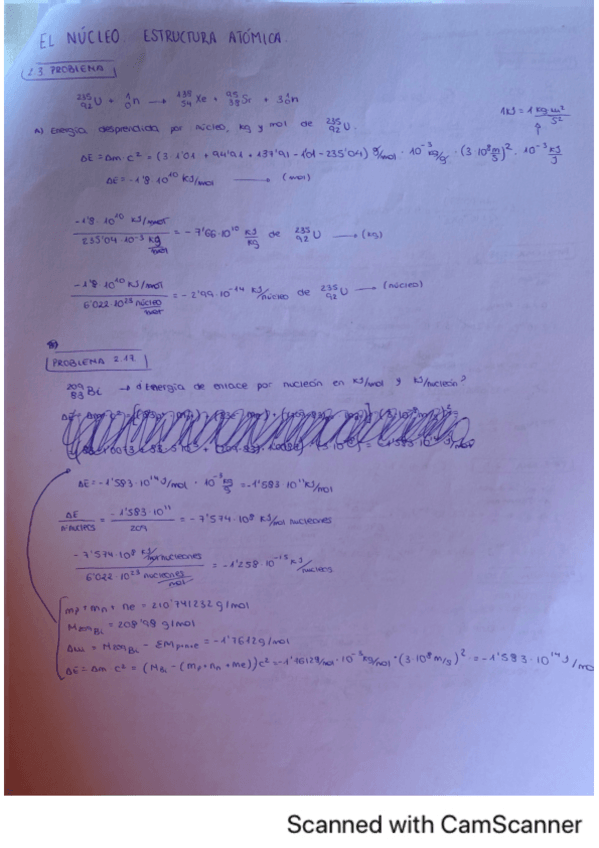 EL NÚCLEO ESTRUCTURA ATÓMICA.
2.3 PROBLEMA
²³⁵₉₂U + ¹₀n → ¹³⁸₅₄Xe + ⁹⁵₃₈Sr + 3¹₀n
1KJ = 1 kg·m²/s²
A) Energía desprendida por núcleo, kg y mol de ²³⁵₉₂U.
ΔE = Δm·c² = (3·1'01 + 94'91 + 137'91 - 1'01 - 235'04) g/mol · 10⁻³ kg/g · (3·10⁸ m/s)² · 10⁻³ KJ/J
ΔE = -1'8·10¹⁰ KJ/mol → (mol)
-1'8·10¹⁰ KJ/mol / 235'04·10⁻³ kg/mol = -7'66·10¹⁰ KJ/kg de ²³⁵₉₂U → (kg)
-1'8·10¹⁰ KJ/mol / 6'022·10²³ núcleo/mol = -2'99·10⁻¹⁴ KJ/núcleo de ²³⁵₉₂U → (núcleo)
PROBLEMA 2.17
²⁰⁹₈₃Bi → ¿Energía de enlace por nucleón en KJ/mol y KJ/nucleón?
ΔE = -1'583·10¹⁴ J/mol · 10⁻³ kg/g = -1'583·10¹¹ KJ/mol
ΔE / Nnucleos = -1'583·10¹¹ / 209 = -7'574·10⁸ KJ/mol nucleones
-7'574·10⁸ KJ/mol nucleones / 6'022·10²³ nucleones/mol = -1'258·10⁻¹⁵ KJ/nucleos
mp + mn + ne = 210'741232 g/mol
M²⁰⁹Bi = 208'98 g/mol
Δm = M²⁰⁹Bi - ΣMp+n+e = -1'7612 g/mol
ΔE = Δm·c² = (MBi - (mp + mn + me))c² = -1'7612 g/mol · 10⁻³ kg/mol · (3·10⁸ m/s)² = -1'583·10¹⁴ J/mol
Scanned with CamScanner